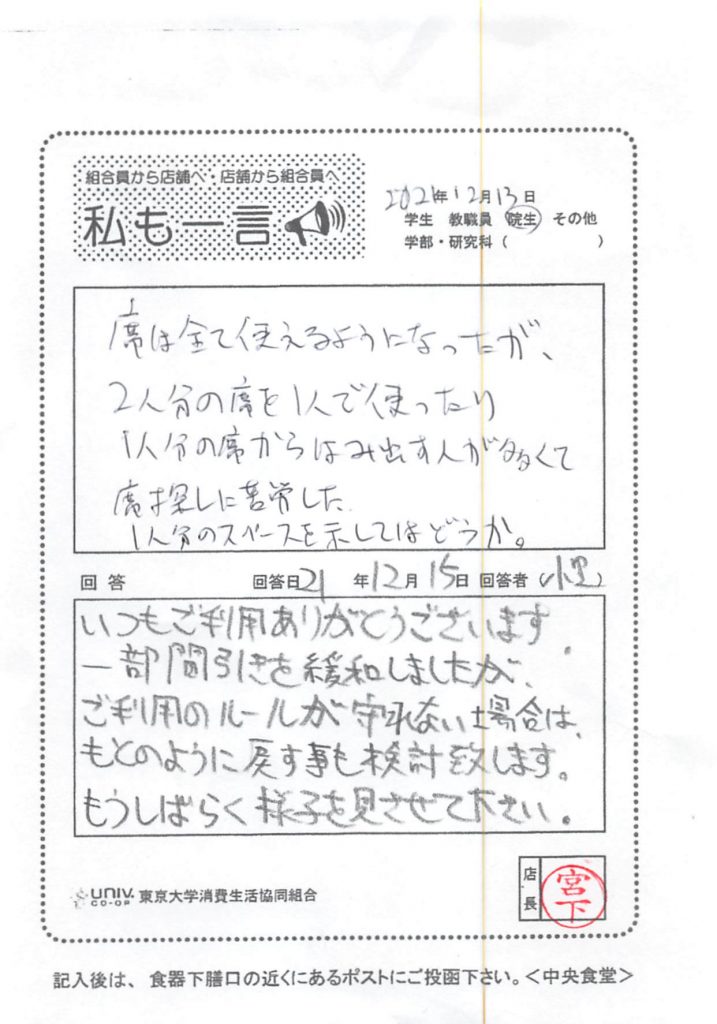 組合員から店舗へ・店舗から組合員へ
私も一言
2021年12月13日
学生 教職員 院生 その他
学部・研究科 ( )
席は全て使えるようになったが、
2人分の席を1人で使ったり
1人分の席からはみ出す人が多くて
席探しに苦労した.
1人分のスペースを示してはどうか。
回答 回答日21年12月15日 回答者( )
いつもご利用ありがとうございます.
一部間引きを緩和しましたが、
ご利用のルールが守れない場合は、
もとのように戻す事も検討致します。
もうしばらく様子を見させて下さい.
UNIV. CO-OP 東京大学消費生活協同組合
店長 宮下
記入後は、食器下膳口の近くにあるポストにご投函下さい。<中央食堂>